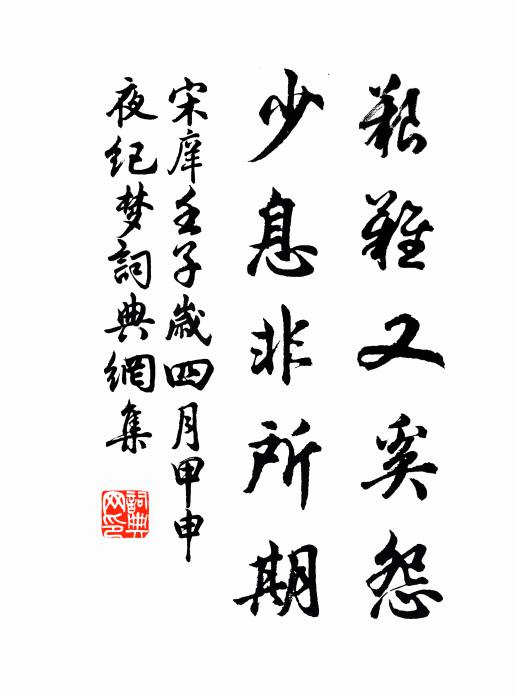 艱難又奚怨
少息非所期
宋庠壬子歲四月甲申
夜纪梦詞典網集
詞典網印